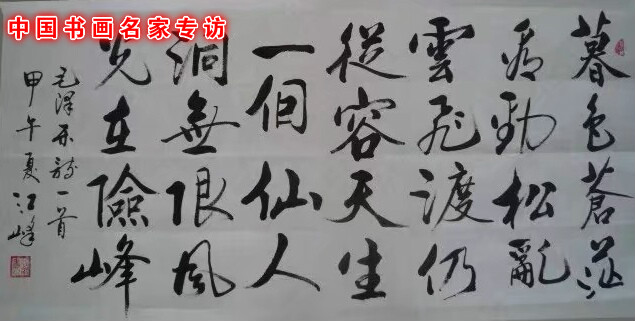 中国书画名家专访
暮色蒼茫
看勁松亂
雲飛渡仍
從容天生
一個仙人
洞無限風
光在險峰
毛澤東詩一首
甲午夏江峰